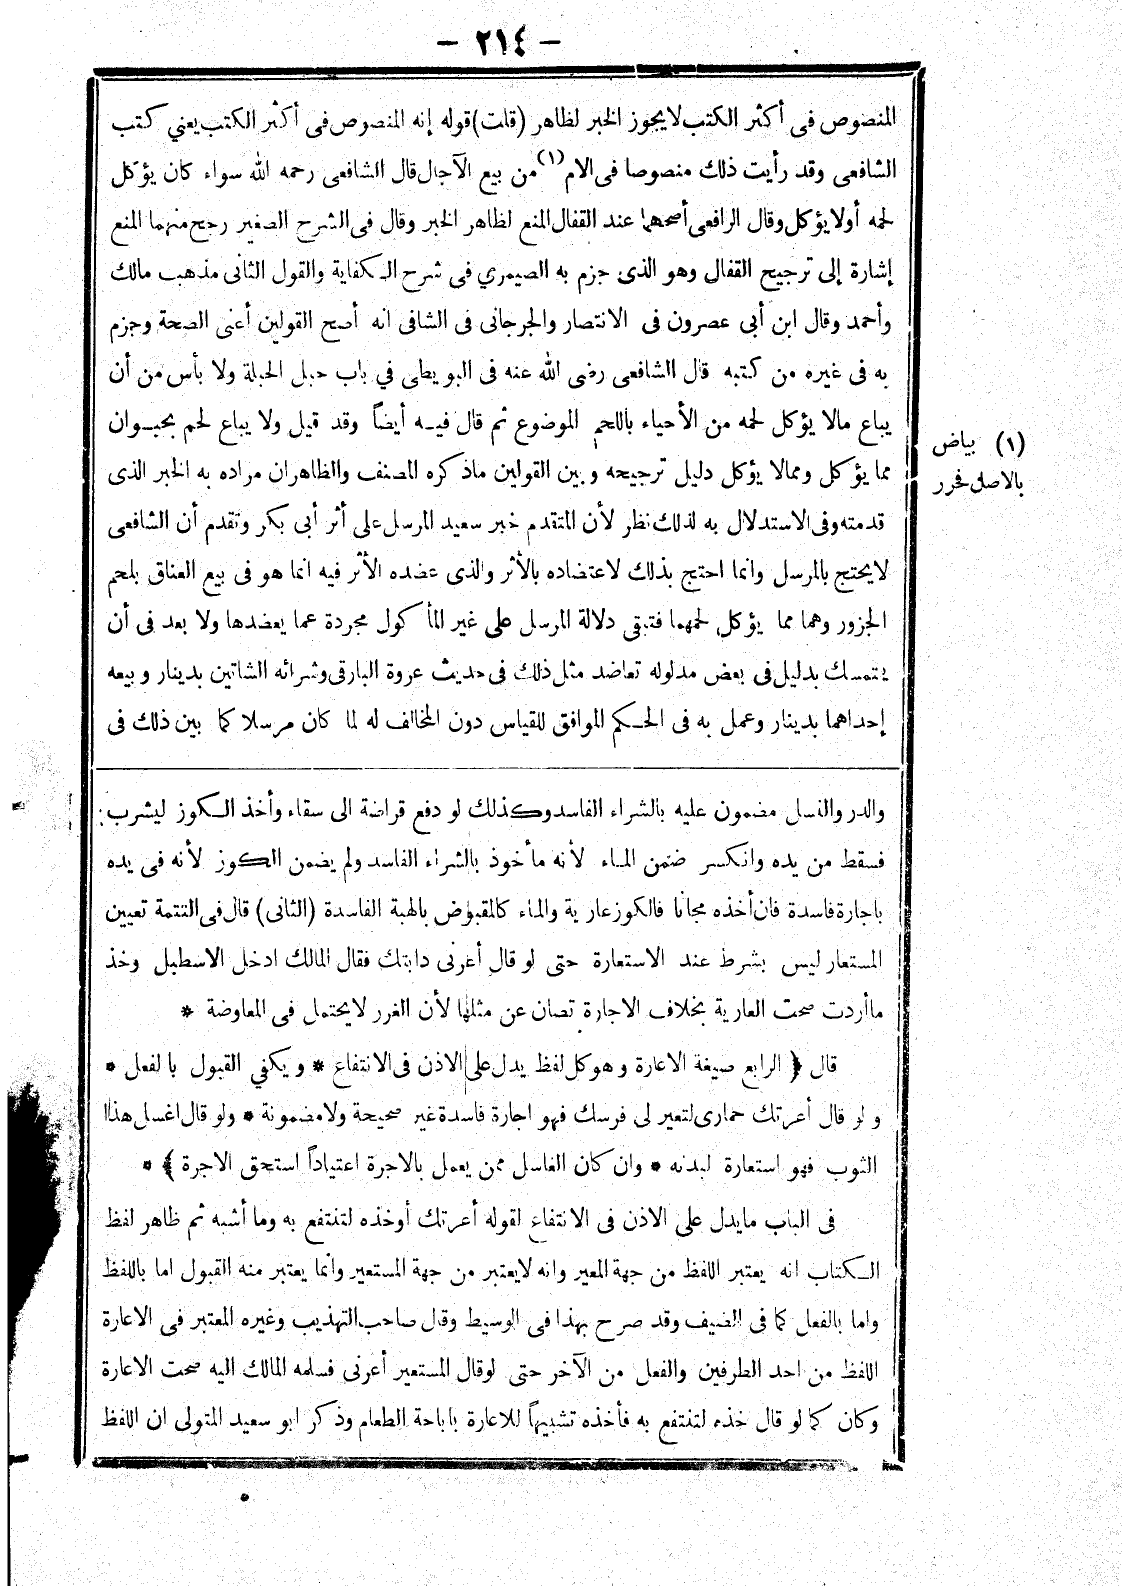 — ٢١٤ —
المنصوص فى أكثر الكتب لايجوز الخبر لظاهر (قلت) قوله إنه المنصوص فى أكثر الكتب يعني كتب
الشافعى وقد رأيت ذلك منصوصا فى الام (١) من بيع الآجال قال الشافعى رحمه الله سواء كان يؤكل
لحمه أولايؤكل وقال الرافعى أصحهما عند القفال المنع لظاهر الخبر وقال فى الشرح الصغير رجح منهما المنع
إشارة إلى ترجيح القفال وهو الذى جزم به الصيمري فى شرح الكفاية والقول الثانى مذهب مالك
وأحمد وقال ابن أبى عصرون فى الانتصار والجرجانى فى الشافى انه أصح القولين أعنى الصحة وجزم
به فى غيره من كتبه قال الشافعى رضى الله عنه فى البويطى في باب حبل الحبلة ولا بأس من أن
يباع مالا يؤكل لحمه من الأحياء باللحم الموضوع ثم قال فيه أيضاً وقد قيل ولا يباع لحم بحيوان
مما يؤكل ومالا يؤكل دليل ترجيحه وبين القولين ماذكره المصنف والظاهران مراده به الخبر الذى
قدمته وفى الاستدلال به لذلك نظر لأن المتقدم خبر سعيد المرسل على أثر أبى بكر وتقدم أن الشافعى
لايحتج بالمرسل وانما احتج بذلك لاعتضاده بالأثر والذى عضده الأثر فيه انما هو فى بيع العناق بلحم
الجزور وهما مما يؤكل لحمهما فتبقى دلالة المرسل على غير المأكول مجردة عما يعضدها ولا بعد فى أن
يتمسك بدليل فى بعض مدلوله تعاضد مثل ذلك فى حديث عروة البارقى وشرائه الشاتين بدينار وبيعه
إحداهما بدينار وعمل به فى الحكم الموافق للقياس دون المخالف له لما كان مرسلا كما بين ذلك فى
(١) بياض
بالاصل فحرر
والدر والنسل مضمون عليه بالشراء الفاسد وكذلك لو دفع قراضة الى سقاء وأخذ الكوز ليشرب:
فسقط من يده وانكسر ضمن الماء لأنه مأخوذ بالشراء الفاسد ولم يضمن الكوز لأنه فى يده
باجارة فاسدة فان أخذه مجانا فالكوز عارية والماء كالمقبوض بالهبة الفاسدة (الثانى) قال فى التتمة تعيين
المستعار ليس بشرط عند الاستعارة حتى لو قال أعرنى دابتك فقال المالك ادخل الاسطبل وخذ
ماأردت صحت العارية بخلاف الاجارة تصان عن مثلها لأن الغرر لايحتمل فى المعاوضة *
قال ﴿ الرابع صيغة الاعارة وهوكل لفظ يدل على الاذن فى الانتفاع * ويكفي القبول بالفعل *
ولو قال أعرتك حمارى لتعير لى فرسك فهو اجارة فاسدة غير صحيحة ولا مضمونة * ولو قال اغسل هذا
الثوب فهو استعارة لبدنه * وان كان الغاسل ممن يعمل بالاجرة اعتياداً استحق الاجرة ﴾ *
فى الباب مايدل على الاذن فى الانتفاع لقوله أعرتك أوخذه لتنتفع به وما أشبه ثم ظاهر لفظ
الكتاب انه يعتبر اللفظ من جهة المعير وانه لايعتبر من جهة المستعير وانما يعتبر منه القبول اما باللفظ
واما بالفعل كما فى الضيف وقد صرح بهذا فى الوسيط وقال صاحب التهذيب وغيره المعتبر فى الاعارة
اللفظ من احد الطرفين والفعل من الآخر حتى لوقال المستعير أعرنى فسلمه المالك اليه صحت الاعارة
وكان كما لو قال خذه لتنتفع به فأخذه تشبيهاً للاعارة باباحة الطعام وذكر ابو سعيد المتولى ان اللفظ